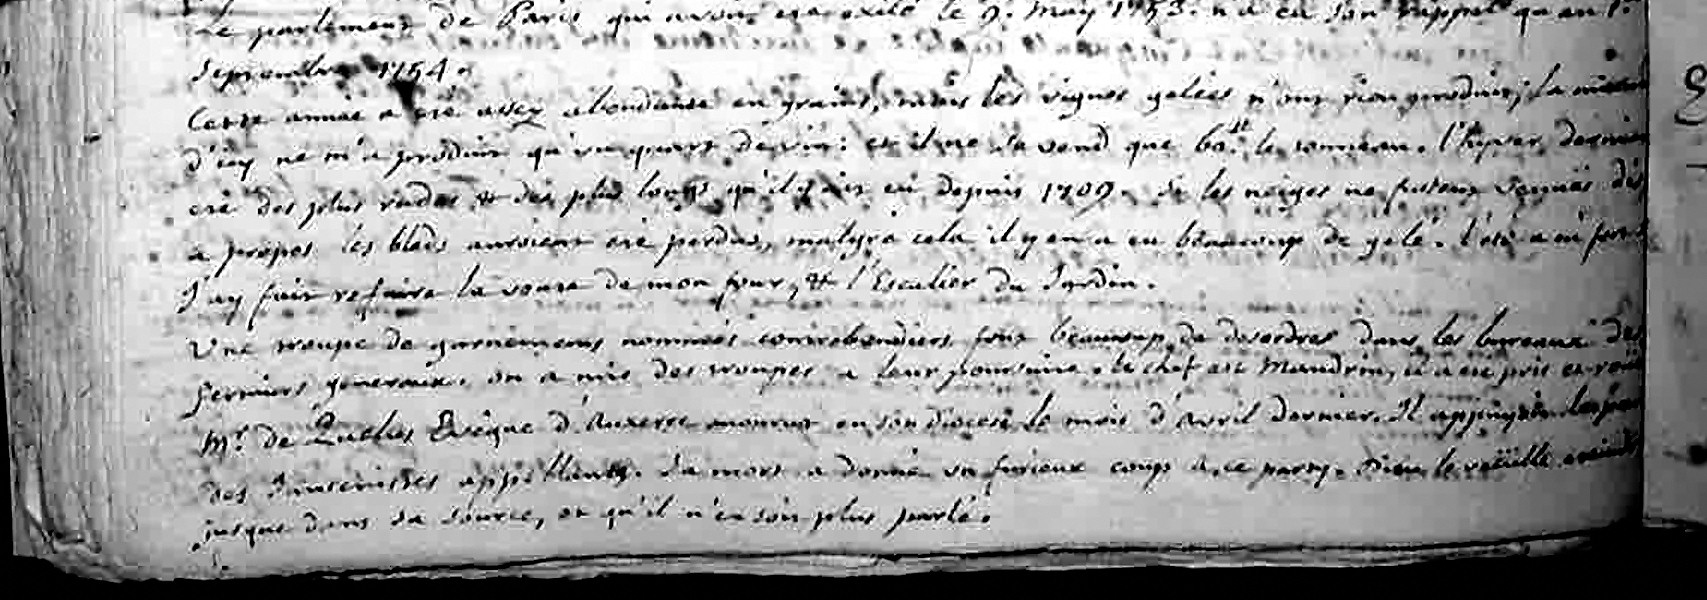 Le parlement de Paris qui avoit eté exilé le 9. May 1753. n'a eu son rappel qu'au 1.er
Septembre 1754.
Cette année a eté assez abondante en grains, mais les vignes gelées n'ont rien produit; la mienne
d'Ay ne m'a produit qu'un quart de vin: et il ne se vend que 60.lt le tonneau. l'hyver dernier
eté des plus rudes & des plus longs qu'il y ait eu depuis 1709. Si les neiges ne fussent venües des
a propos les bleds auroient eté perdus, malgré cela il y en a eu beaucoup de gelé. l'eté a eté
J'ay fait refaire la voute de mon four, & l'Escalier du Jardin.
Une troupe de garnemens nommés contrebandiers font beaucoup de desordres dans les bureaux des
fermiers generaux. on a mis des troupes a leur poursuite. le chef est Mandrin, il a eté pris et roüé
Mr. de Quelus Evêque d'Auxerre mourut en son diocese le mois d'Avril dernier. Il appuyoit
des Jansenistes appellants. Sa mort a donné un furieux coup a ce party. Dieu le veüille
jusque dans sa source, et qu'il n'en soit plus parlé.